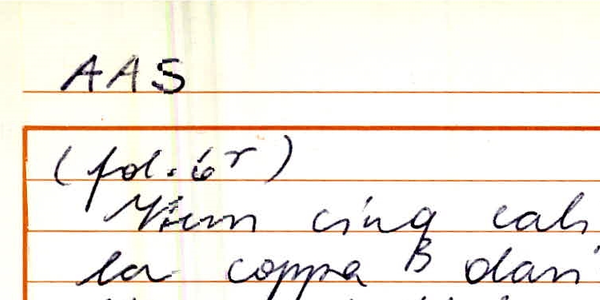 AAS
(fol. 6r)
Item cinq cali
la coppa